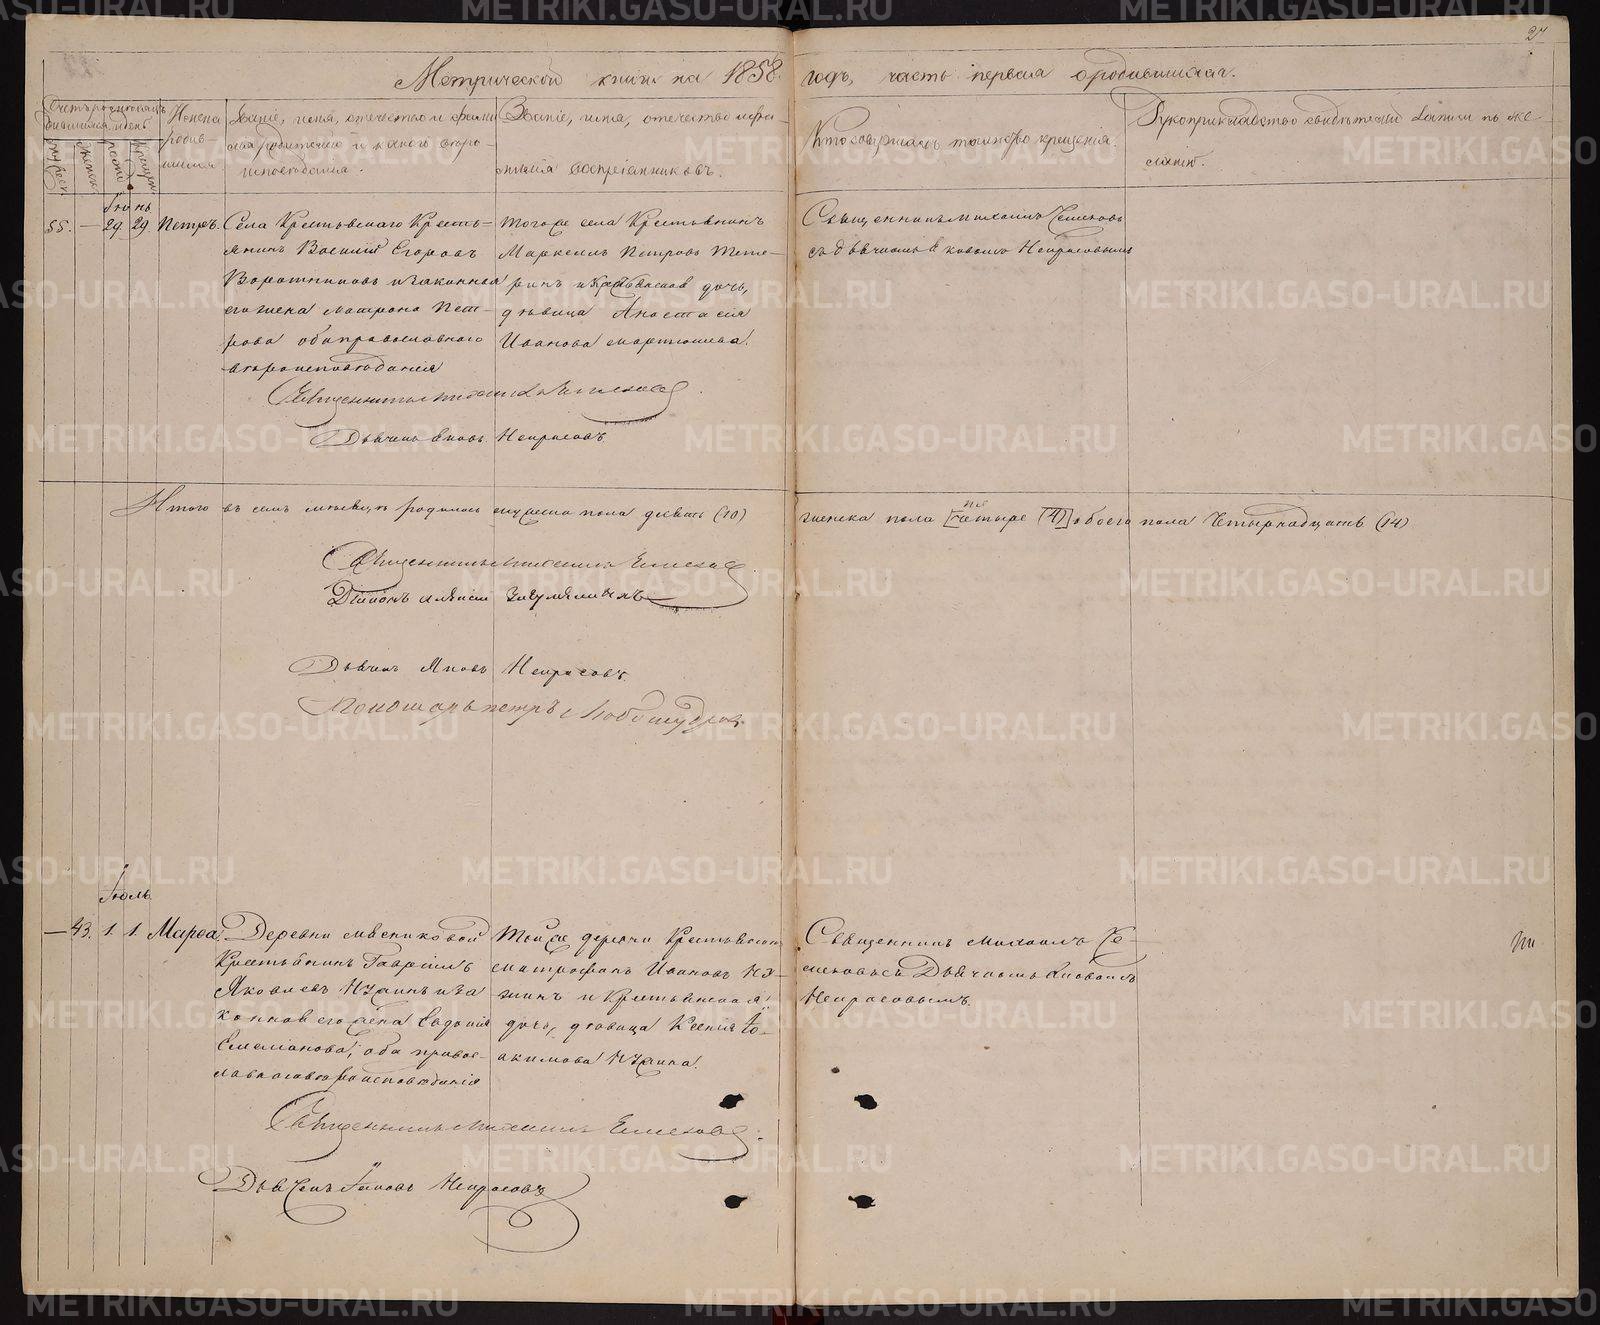 27
Метрической книги на 1858 годъ, часть первая о родившихся.
Счетъ родившихся
мужеск.
женск.
рожден.
крещен.
Имена родив-
шихся
Званіе, имя, отечество и фами-
лія родителей и какого веро-
исповѣданія.
Званіе, имя, отечество и фа-
милія воспріемниковъ.
Кто совершалъ таинство крещенія.
Рукоприкладство свидѣтелей записи по же-
ланію.
Іюнь
55. — 29. 29. Петръ.
Села Крестовскаго Кресть-
янинъ Василій Егоровъ
Воротниковъ и законная
его жена Матрона Пет-
рова оба православнаго
вѣроисповѣданія
Того же села Крестьянинъ
Маркеллъ Петровъ Тете-
ринъ и Крестьянская дочь,
дѣвица Анастасія
Иванова Мартюшева.
Священникъ Михаилъ
съ Дьячкомъ Іаковомъ Некрасовымъ
Священникъ Михаилъ
Дьячекъ Іаковъ Некрасовъ
Итого въ семъ мѣсяцѣ родилось мужеска пола девять (10)
женска пола [четыре (4)] обоего пола Четырнадцать (14)
Священникъ Михаилъ
Діаконъ
Дьячекъ Іаковъ Некрасовъ.
Пономарь Петръ Любомудровъ.
Іюль
— 43. 1. 1. Марѳа.
Деревни Мясниковой
Крестьянинъ Гавріилъ
Яковлевъ Нужинъ и за
конная его жена Евдокія
Емелианова, оба правос-
лавнаго вѣроисповѣданія
Той же деревни Крестьянинъ
Митрофанъ Ивановъ Ну-
жинъ и Крестьянская
дочь, дѣвица Ксенія Іо-
акимова Нужина.
Священникъ Михаилъ
съ Дьячкомъ Іаковомъ
Некрасовымъ.
Священникъ Михаилъ
Дьячекъ Іаковъ Некрасовъ
METRIKI.GASO-URAL.RU